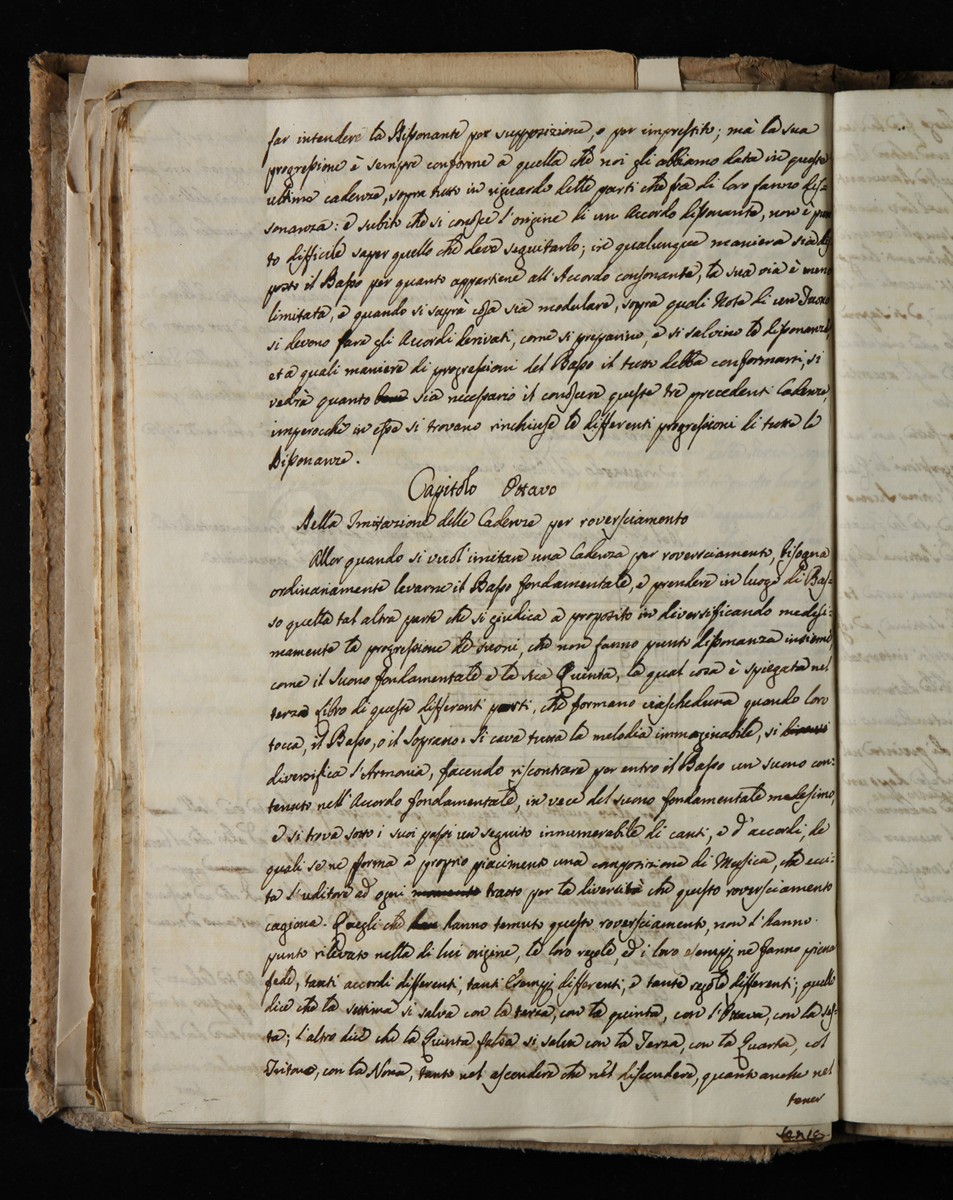 far intendere la Dissonante per supposizione, o per imprestito; mà la sua
progressione è sempre conforme a quella che noi gli abbiamo data in queste
ultime cadenze, sopra tutto in riguardo delle parti che fra di loro fanno dis-
sonanza: e subito che si conosce l'origine di un Accordo dissonante, non è pun
to difficile saper quello che deve seguitarlo; in qualunque maniera sia dis
posto il Basso per quanto appartiene all'Accordo consonante, la sua via è meno
limitata, e quando si saprà cosa sia modulare, sopra quali Note di un Tuono
si devono fare gli Accordi derivati, come si preparino, e si salvino le dissonanze,
et a quali maniere di progressioni del Basso il tutto debba conformarsi, si
vedrà quanto sia necessario il conoscere queste tre precedenti Cadenze,
imperocchè in esse si trovano rinchiuse le differenti progressioni di tutte le
Dissonanze.
Capitolo Ottavo
Della Imitazione delle Cadenze per roversciamento
Allor quando si vuol imitare una Cadenza per roversciamento, bisogna
ordinariamente levarne il Basso fondamentale, e prendere in luogo di Bas-
so quella tal altra parte che si giudica a proposito in diversificando medesi-
mamente la progressione de suoni, che non fanno punto dissonanza insieme
come il suono fondamentale e la sua Quinta, la qual cosa è spiegata nel
terzo Libro di queste differenti parti, che formano ciascheduna quando loro
tocca, il Basso, o il Soprano. Si cava tutta la melodia immaginabile, si
diversifica l'Armonia, facendo riscontrare per entro il Basso un suono con-
tenuto nell'Accordo fondamentale, in vece del suono fondamentale medesimo,
e si trova sotto i suoi passi un seguito innumerabile di canti, e d'accordi, de
quali se ne forma a proprio piacimento una composizione di Musica, che ecci-
ta l'uditore ad ogni tratto per la diversità che questo roversciamento
cagiona. Quegli che hanno temuto questo roversciamento, non l'hanno
punto rilevato nella di lui origine, le loro regole, ed i loro esempj ne fanno piena
fede, tanti accordi differenti, tanti Esempj differenti, e tante regole differenti; quello
dice che la settima si salva con la terza, con la quinta, con l'Ottava, con la ses-
ta; l'altro dice che la Quinta falsa si salva con la Terza, con la Quarta, col
Tritono, con la Nona, tanto nel ascendere che nel discendere, quanto anche nel
tener